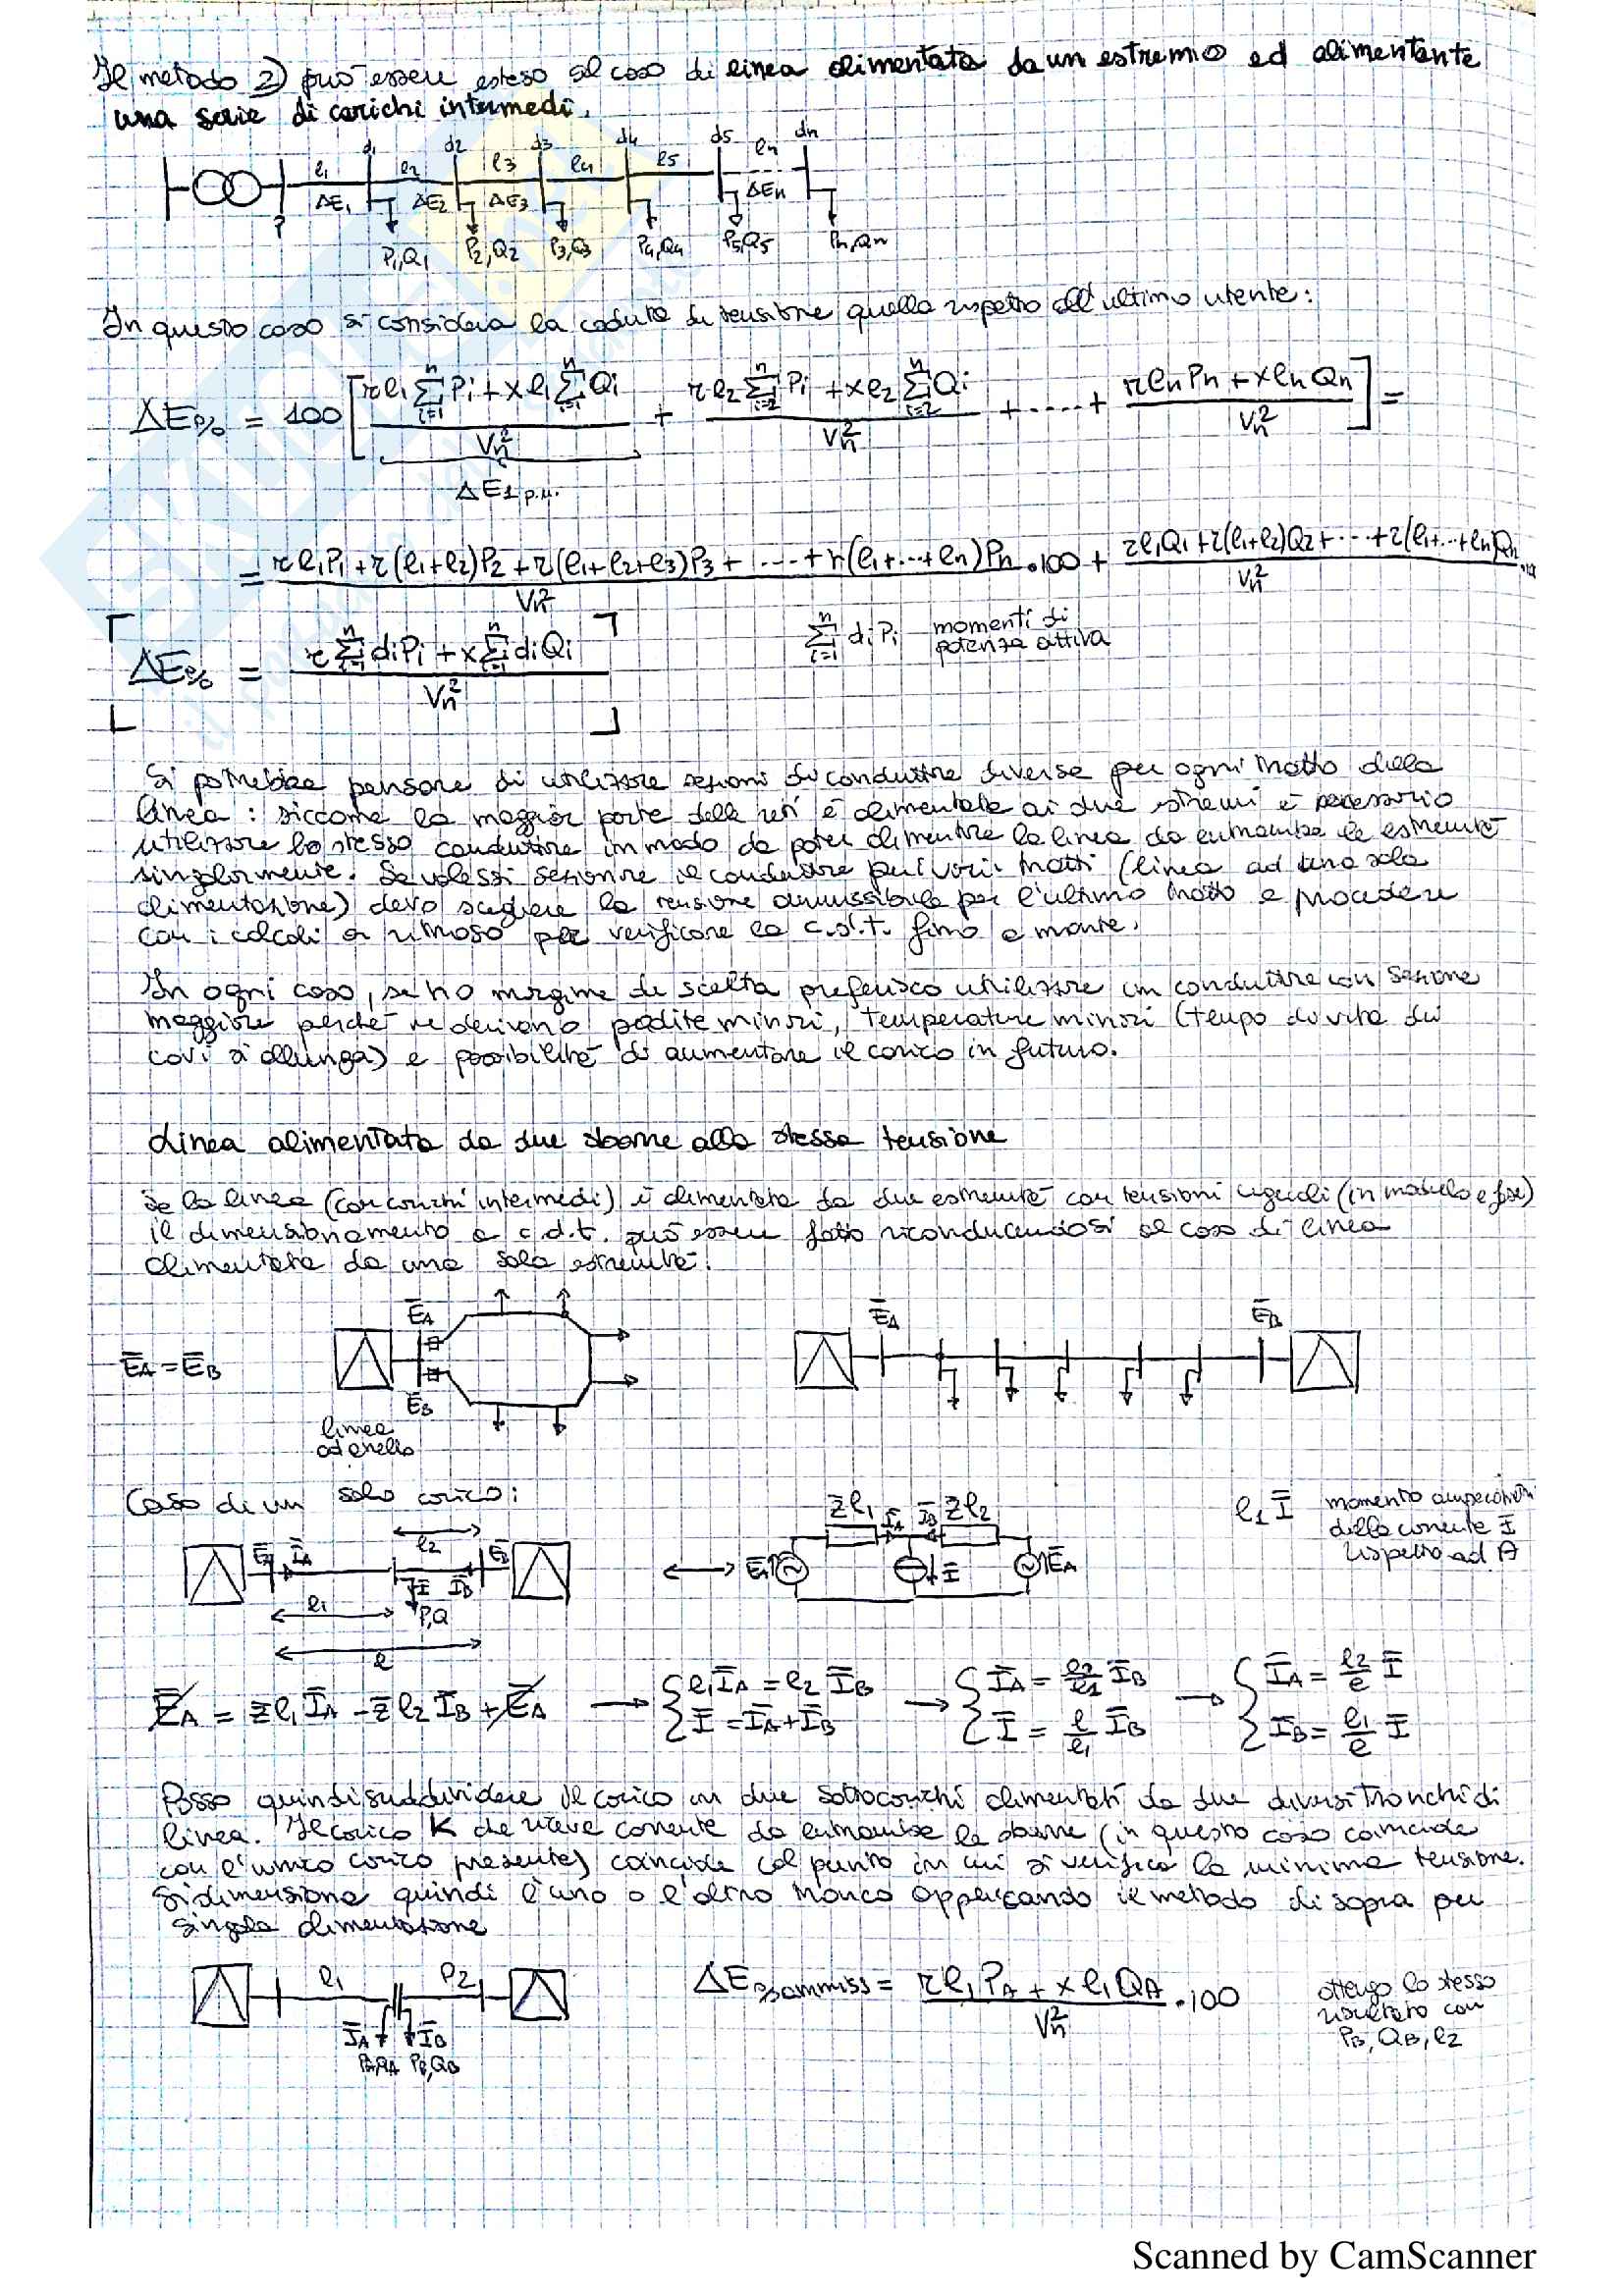 Il metodo 2) può essere esteso al caso di linea alimentata da un estremo ed alimentante
una serie di carichi intermedi.
d1 d2 d3 d4 d5 dn
l1 l2 l3 l4 l5 ln
ΔE1 ΔE2 ΔE3 ΔEn
P1,Q1 P2,Q2 P3,Q3 P4,Q4 P5,Q5 Pn,Qn
In questo caso si considera la caduta di tensione quella rispetto all'ultimo utente:
ΔE% = 100 [ (r l1 Σ(i=1..n) Pi + x l1 Σ(i=1..n) Qi) / Vn² + (r l2 Σ(i=2..n) Pi + x l2 Σ(i=2..n) Qi) / Vn² + ..... + (r ln Pn + x ln Qn) / Vn² ] =
ΔE1 p.u.
= (r l1P1 + r(l1+l2)P2 + r(l1+l2+l3)P3 + .... + r(l1+...+ln)Pn) / Vn² · 100 + (r l1Q1 + r(l1+l2)Q2 + ... + r(l1+...+ln)Qn) / Vn²
ΔE% = (r Σ(i=1..n) diPi + x Σ(i=1..n) diQi) / Vn²
Σ(i=1..n) di Pi momenti di
potenza attiva
Si potrebbe pensare di utilizzare sezioni di conduttore diverse per ogni tratto della
linea: siccome la maggior parte delle reti è alimentata ai due estremi è necessario
utilizzare lo stesso conduttore in modo da poter alimentare la linea da entrambe le estremità
singolarmente. Se volessi sezionare il conduttore per i vari tratti (linea ad una sola
alimentazione) devo scegliere la tensione ammissibile per l'ultimo tratto e procedere
con i calcoli a ritroso per verificare la c.d.t. fino a monte.
In ogni caso, se ho margine di scelta preferisco utilizzare un conduttore con sezione
maggiore perché ne derivano perdite minori, temperature minori (tempo di vita dei
cavi si allunga) e possibilità di aumentare il carico in futuro.
Linea alimentata da due sbarre alla stessa tensione
Se la linea (con carichi intermedi) è alimentata da due estremità con tensioni uguali (in modulo e fase)
il dimensionamento a c.d.t. può essere fatto riconducendosi al caso di linea
alimentata da una sola estremità.
ĒA = ĒB
ĒA
ĒB
linea
ad anello
ĒA ĒB
Caso di un solo carico:
ĪA l1 l2 Ī ĪB P,Q l
z̄l1 ĪA ĪB z̄l2
ĒA Ī ĒA
l1 Ī momento amperometr.
della corrente Ī
rispetto ad A
ĒA = z̄l1 ĪA − z̄l2 ĪB + ĒA → { l1ĪA = l2 ĪB → { ĪA = l2/l1 ĪB → { ĪA = l2/l Ī
{ Ī = ĪA + ĪB { Ī = l/l1 ĪB { ĪB = l1/l Ī
Posso quindi suddividere il carico in due sottocarichi alimentati da due diversi tronchi di
linea. Il carico K che riceve corrente da entrambe le sbarre (in questo caso coincide
con l'unico carico presente) coincide col punto in cui si verifica la minima tensione.
Si dimensiona quindi l'uno o l'altro tronco applicando il metodo di sopra per
singola alimentazione
l1 l2
ĪA ĪB
PA,QA PB,QB
ΔE%ammiss = (r l1 PA + x l1 QA) / Vn² · 100
ottengo lo stesso
risultato con
PB, QB, l2
Scanned by CamScanner